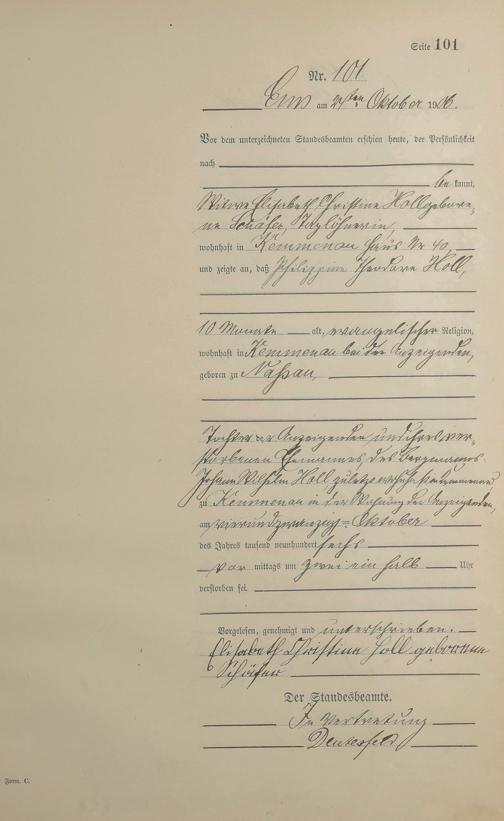 Seite 101
Nr. 101
Ems am ten Oktober 1906.
Vor dem unterzeichneten Standesbeamten erschien heute, der Persönlichkeit
nach
be kannt,
Witwe Elisabeth Christine Holl gebore-
ne Schäfer, Taglöhnerin,
wohnhaft in Kemmenau Haus Nr 40,
und zeigte an, daß Philippine Theodore Holl,
10 Monate alt, evangelischer Religion,
wohnhaft in Kemmenau bei der Anzeigenden,
geboren zu Nassau,
Tochter der Anzeigenden und ihres ver-
storbenen Ehemannes, des Bergmanns
Johann Wilhelm Holl zuletzt wohnhaft in Kemmenau
zu Kemmenau in der Wohnung der Anzeigenden,
am vierundzwanzig ten Oktober
des Jahres tausend neunhundert sechs
vor mittags um zwei ein halb Uhr
verstorben sei.
Vorgelesen, genehmigt und unterschrieben.
Elisabeth Christine Holl geborene
Schäfer
Der Standesbeamte.
In Vertretung
Form. C.